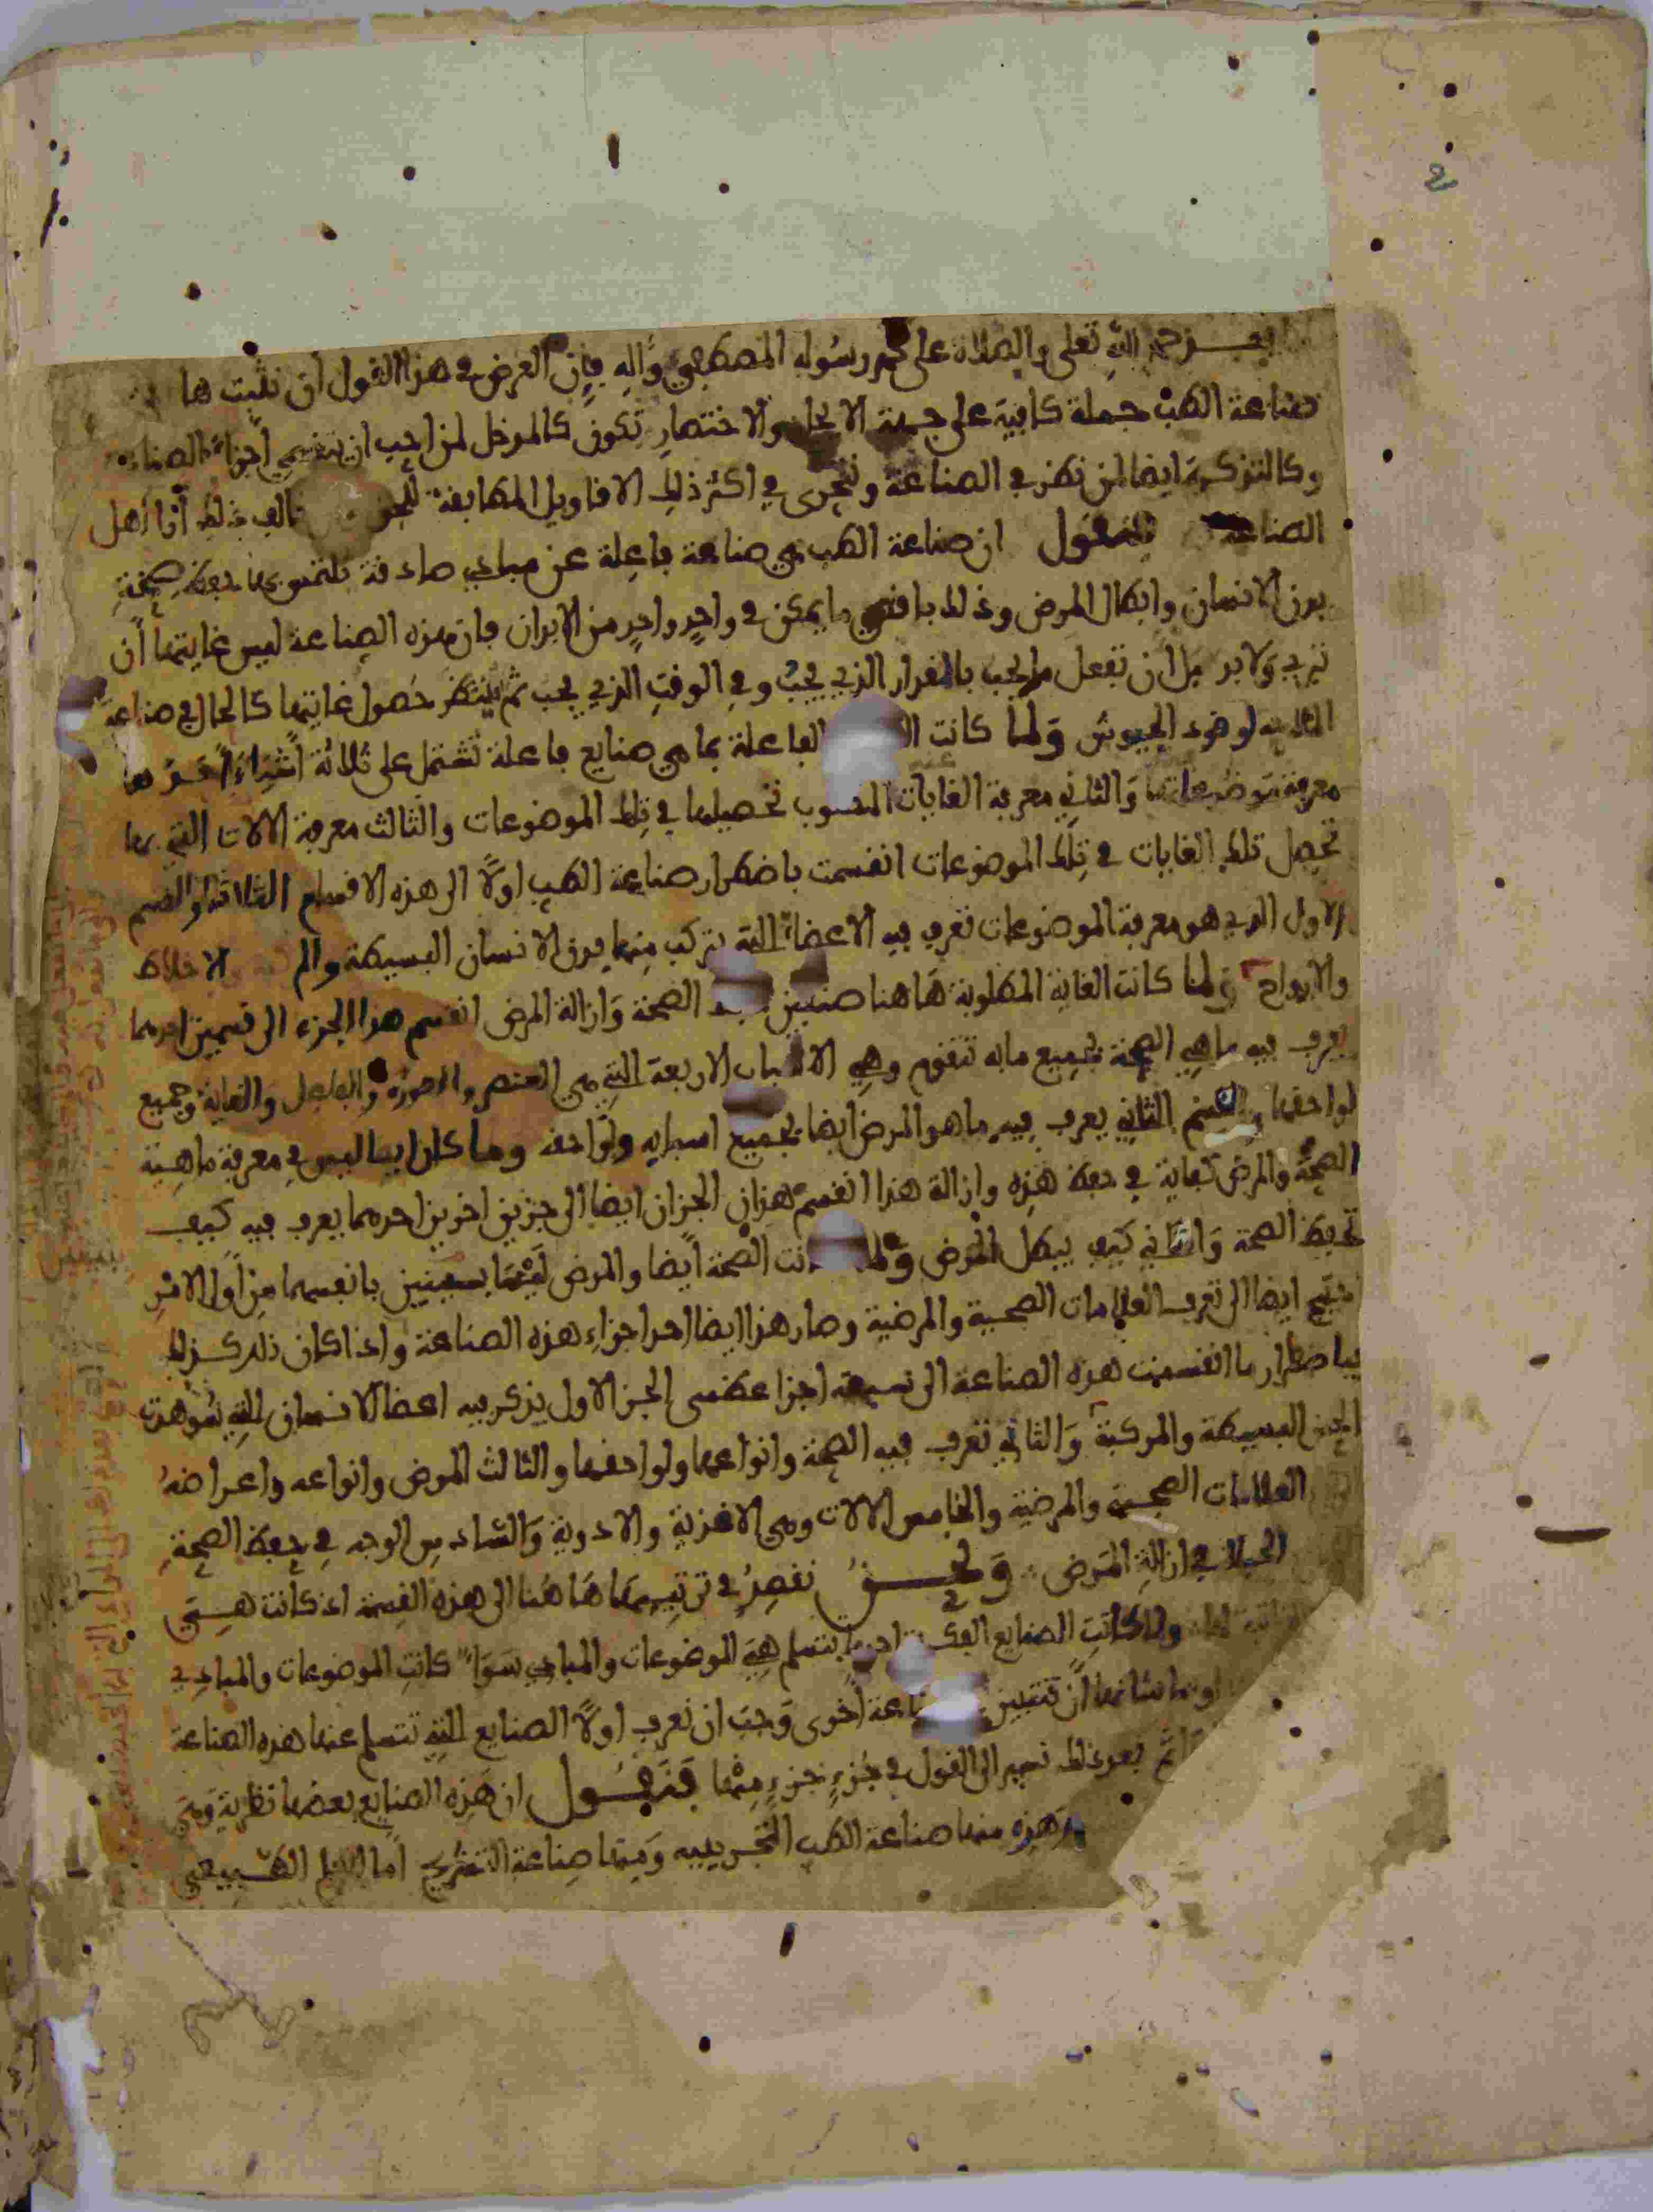 بعد حمد الله تعلى والصلاة على محمد رسوله المصطفى واله فان الغرض في هذا القول ان نثبت ها
صناعة الطب جملة كافية على جهة الايجاز والاختصار تكون كالمدخل لمن احب ان يتقصى اجزاء الصناعة
وكالتذكرة ايضا لمن نظر في الصناعة ونتحرى في اكثر ذلك الاقاويل المطابقة للحق خالف ذلك اراء اهل
الصناعة فنقول ان صناعة الطب هي صناعة فاعلة عن مبادي صادقة يلتمس بها حفظ صحة
بدن الانسان وابطال المرض وذلك باقصى ما يمكن في واحد واحد من الابدان فان هذه الصناعة ليس غايتها ان
تبري ولا بد بل ان تفعل ما يجب بالمقدار الذي يجب وفي الوقت الذي يجب ثم ينتظر حصول غايتها كالحال في صناعة
الملاحة وقود الجيوش ولما كانت الفاعلة بما هي صنايع فاعلة تشتمل على ثلاثة اشياء احدها
معرفة موضوعاتها والثاني معرفة الغايات المطلوب تحصيلها في تلك الموضوعات والثالث معرفة الالات التي بها
تحصل تلك الغايات في تلك الموضوعات انقسمت باضطرار صناعة الطب اولا الى هذه الاقسام الثلاثة والقسم
الاول الذي هو معرفة الموضوعات تعرف فيه الاعضاء التي يتركب منها بدن الانسان البسيطة والم الاخلاط
والارواح ولما كانت الغاية المطلوبة هاهنا صنفين حفظ الصحة وازالة المرض انقسم هذا الجزء الى قسمين احدهما
يعرف فيه ما هي الصحة بجميع ما به تتقوم وهي الاسباب الاربعة التي هي العنصر والصورة والفاعل والغاية وجميع
لواحقها والقسم الثاني يعرف فيه ما هو المرض ايضا بجميع اسبابه ولواحقه وما كان ايضا ليس في معرفة ماهية
الصحة والمرض كفاية في حفظ هذه وازالة هذا انقسم هذان الجزان ايضا الى جزين اخرين احدهما يعرف فيه كيف
تحفظ الصحة والثاني كيف يبطل المرض ولما كانت الصحة ايضا والمرض ليسا ببينين بانفسهما من اول الامر
احتيج ايضا الى تعرف العلامات الصحية والمرضية وصار هذا ايضا احد اجزاء هذه الصناعة واذا كان ذلك كذلك
فباضطرار ما انقسمت هذه الصناعة الى سبعة اجزا عظمى الجز الاول يذكر فيه اعضا الانسان التي شوهدت
بالحس البسيطة والمركبة والثاني تعرف فيه الصحة وانواعها ولواحقها والثالث المرض وانواعه واعراضه
العلامات الصحية والمرضية والخامس الالات وهي الاغذية والادوية والسادس الوجه في حفظ الصحة
الحيلة في ازالة المرض ونحن نقصد في ترتيبها هاهنا الى هذه القسمة اذ كانت هي
ولما كانت الصنايع يتسلم هي الموضوعات والمبادي سواء كانت الموضوعات والمبادي
او ما شانها ان تتبين صناعة اخرى وجب ان نعرف اولا الصنايع التي تتسلم عنها هذه الصناعة
ثم بعد ذلك نصير الى القول في جزء جزء منها فنقول ان هذه الصنايع بعضها نظرية وهي
وهذه منها صناعة الطب التجريبية ومنها صناعة التشريح اما العلم الطبيعي